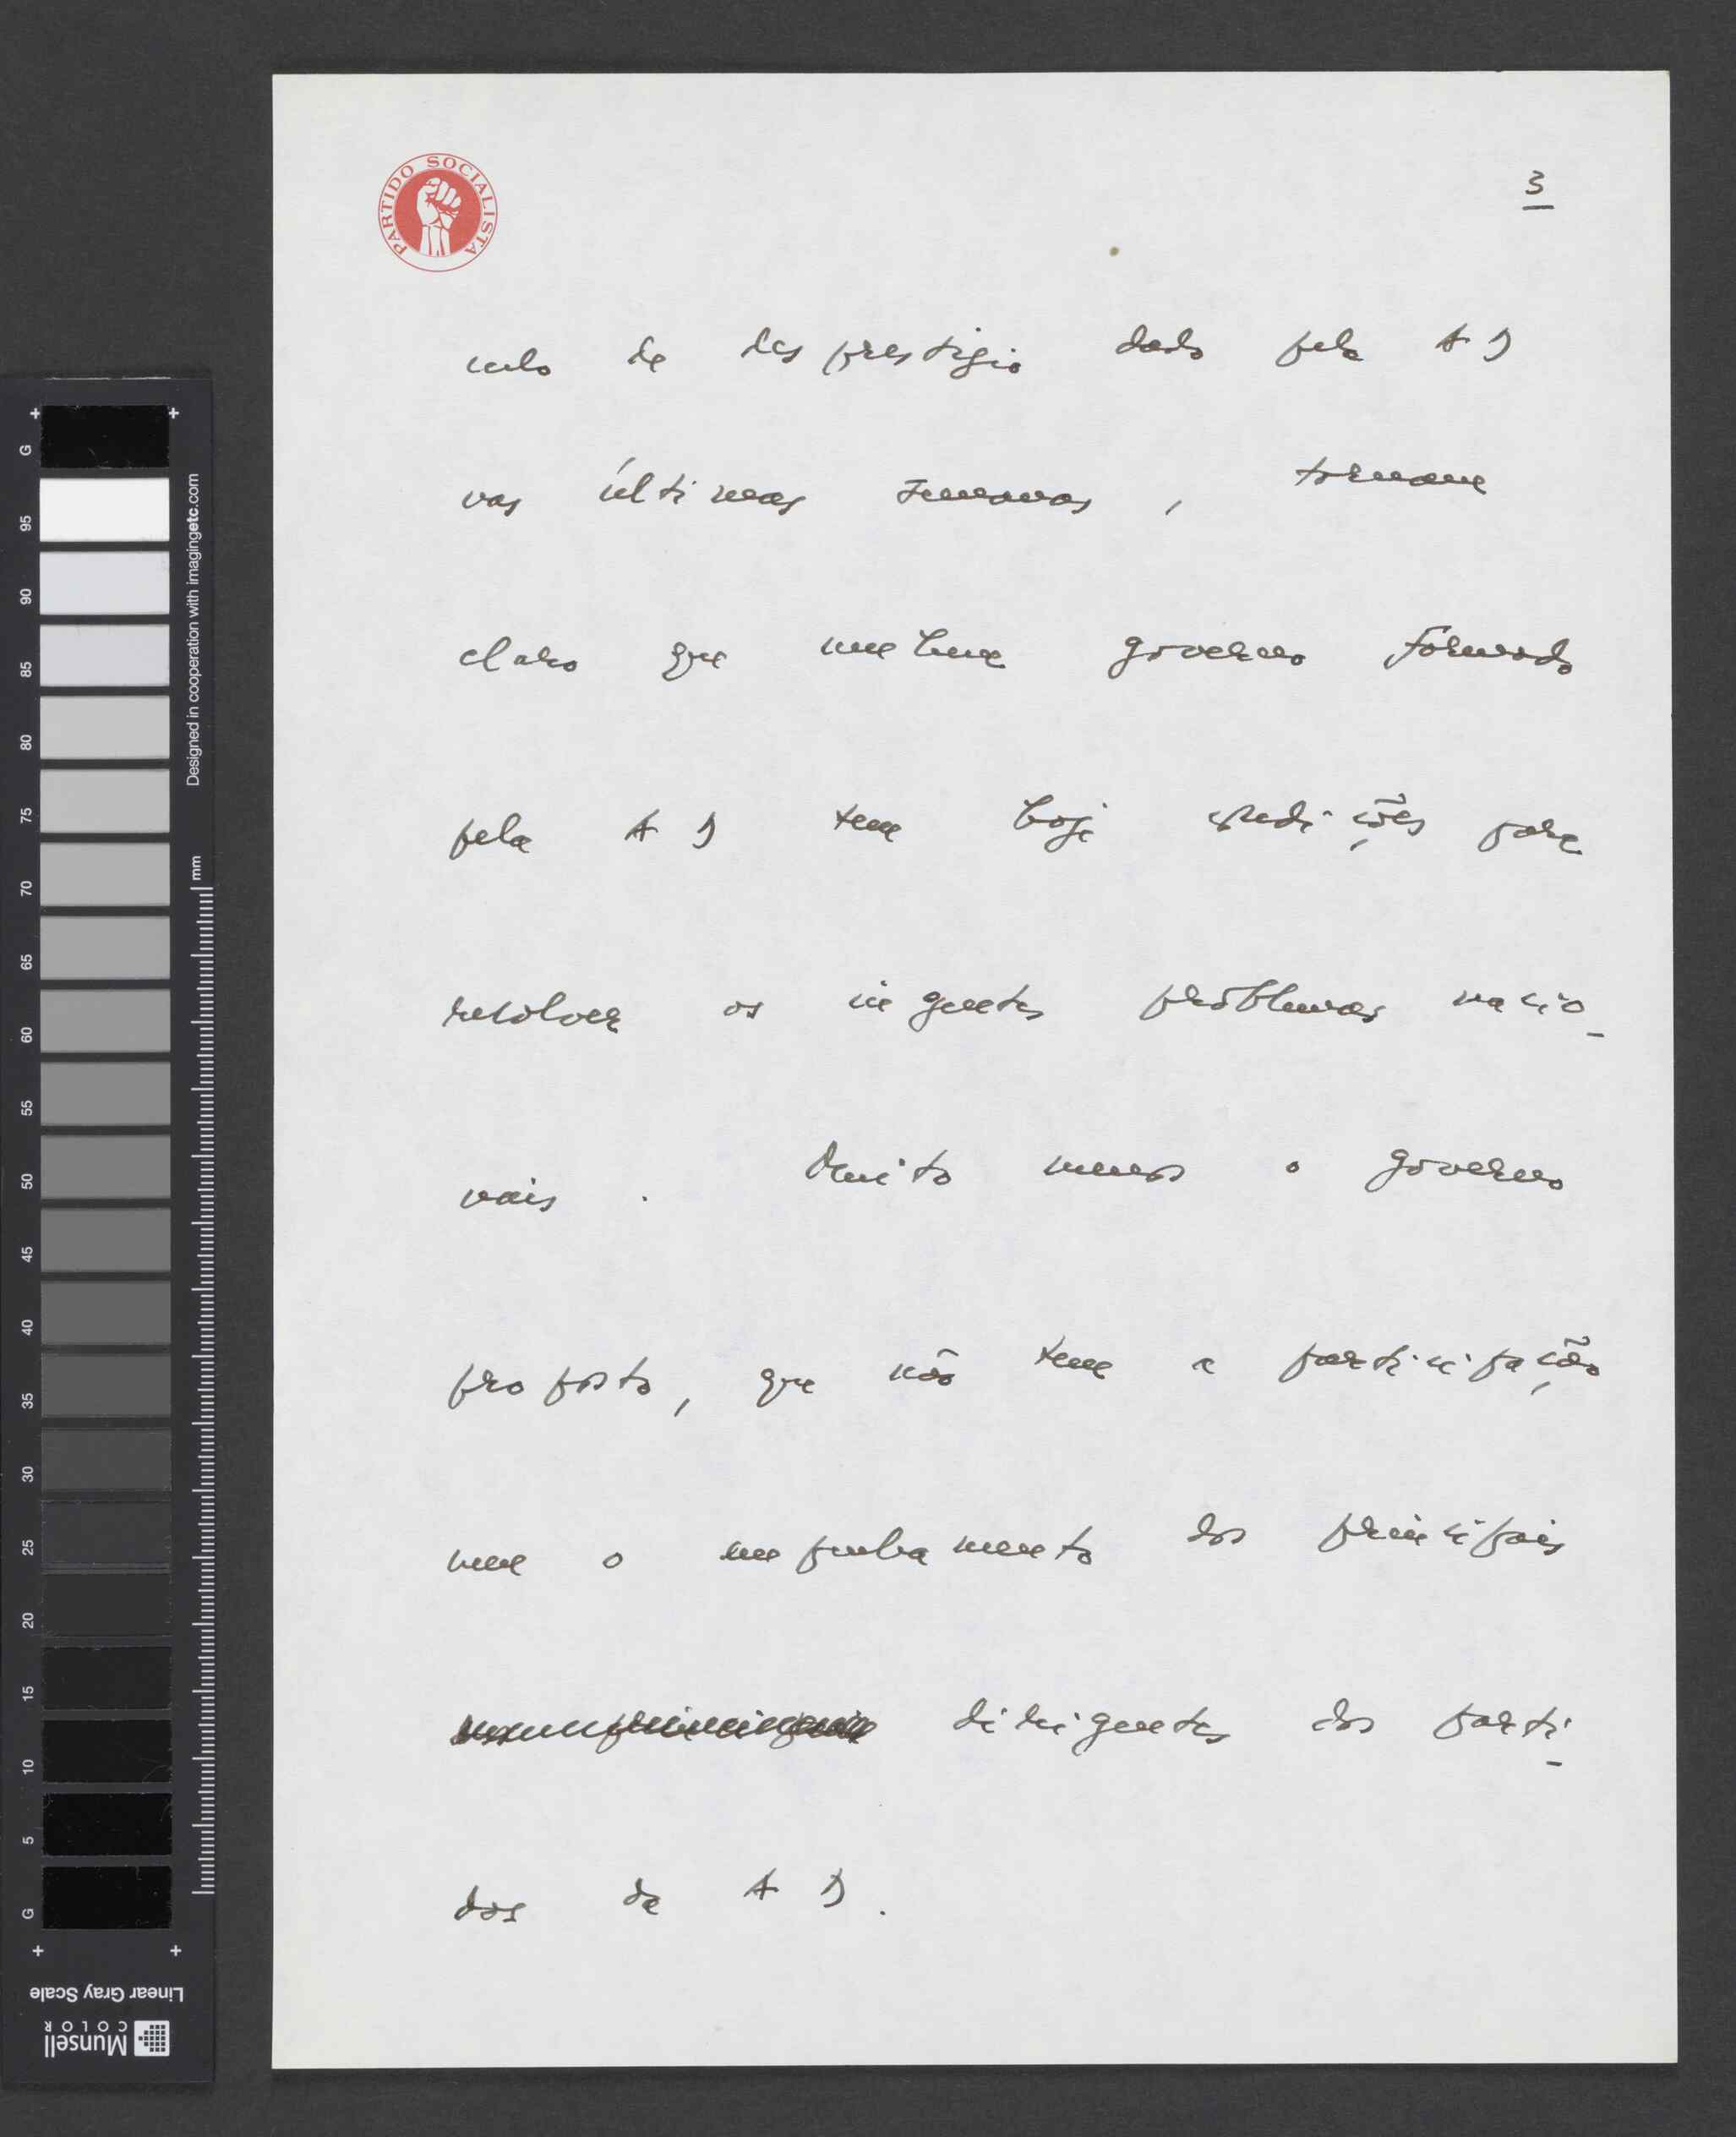 PARTIDO SOCIALISTA
3
culo de desprestigio dado pela AD
nas últimas semanas, tornam
claro que nenhum governo formado
pela AD tem hoje condições para
resolver os ingentes problemas nacio-
nais. Muito menos o governo
proposto, que não tem a participação
nem o empenhamento dos principais
dirigentes dos parti-
dos da AD.
G
95
90
85
80
75
70
65
60
55
50
45
40
35
30
25
20
15
10
5
G
mm
Designed in cooperation with imagingetc.com
Linear Gray Scale
Munsell
COLOR